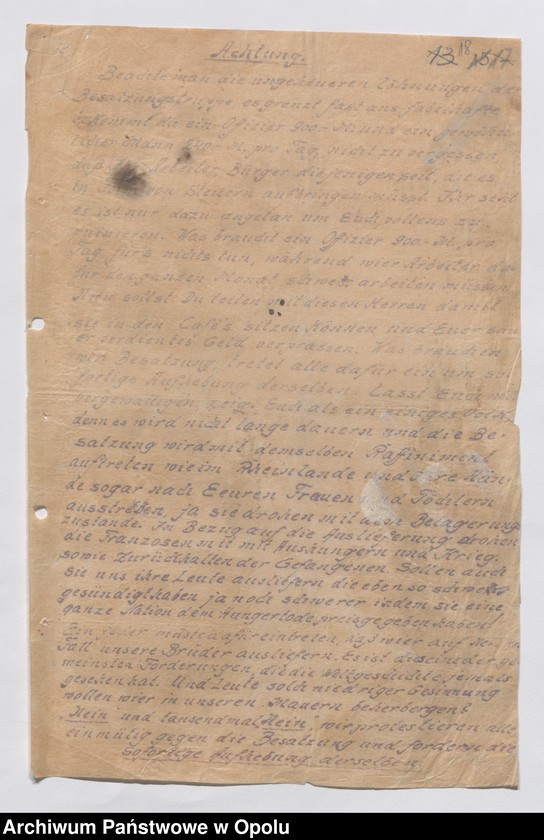 Achtung. 13 18 1517
Beachte man die ungeheueren Löhnungen der
Besatzungstruppe, es grenzt fast ans fabelhafte
bekommt da ein Ofizier 900.-M. und ein gewöhn-
licher Mann M. pro Tag, nicht zu vergessen,
Arbeiter, Bürger diejenigen seit, die es
in von Steuern aufbringen müsst. Ihr seht
es ist nur dazu angetan um Euch vollens zu
ruinieren. Was braucht ein Ofizier 900.-M. pro
Tag fürs nichts tun, während wier Arbeiter
für den ganzen Monat schwer arbeiten müssen.
Nun sollst Du teilen mit diesen Herren damit
sie in den Cafés sitzen können und Euer sau
er verdientes Geld verprassen. Was brauchen
wir Besatzung, tretet alle dafür ein um so
fortige Aufhebung derselben. Lasst Euch
vergewaltigen zeig. Euch als ein einiges Volk
denn es wird nicht lange dauern und die Be-
satzung wird mit demselben Rafiniment
auftreten wie im Rheinlande und ihre Hän-
de sogar nach Eeuren Frauen und Töchtern
ausstreken, ja sie drohen mit dem Belagerung
zustande. In Bezug auf die Auslieferung drohen
die Franzosen mit mit Aushungern und Krieg.
sowie Zurückhalten der Gefangenen. Sollen auch
sie uns ihre Leute auslifern die eben so schwer
gesündigt haben ja noch schwerer indem sie eine
ganze Nation dem Hungertode preisgegeben haben!
Ein jeder müste dafür eintreten, daß wier auf
Fall unsere Brüder ausliefern. Es ist dieseine der ge
meinsten Forderungen, die die Weltgeschichte jemals
gesehen hat. Und Leute solch niedriger Gesinnung
wollen wier in unseren Mauern beherbergen?
„Nein" und tausendmal „Nein", wir protestieren alle
einmütig gegen die Besatzung und fordern die
Sofortige Aufhebung derselben.
Archiwum Państwowe w Opolu